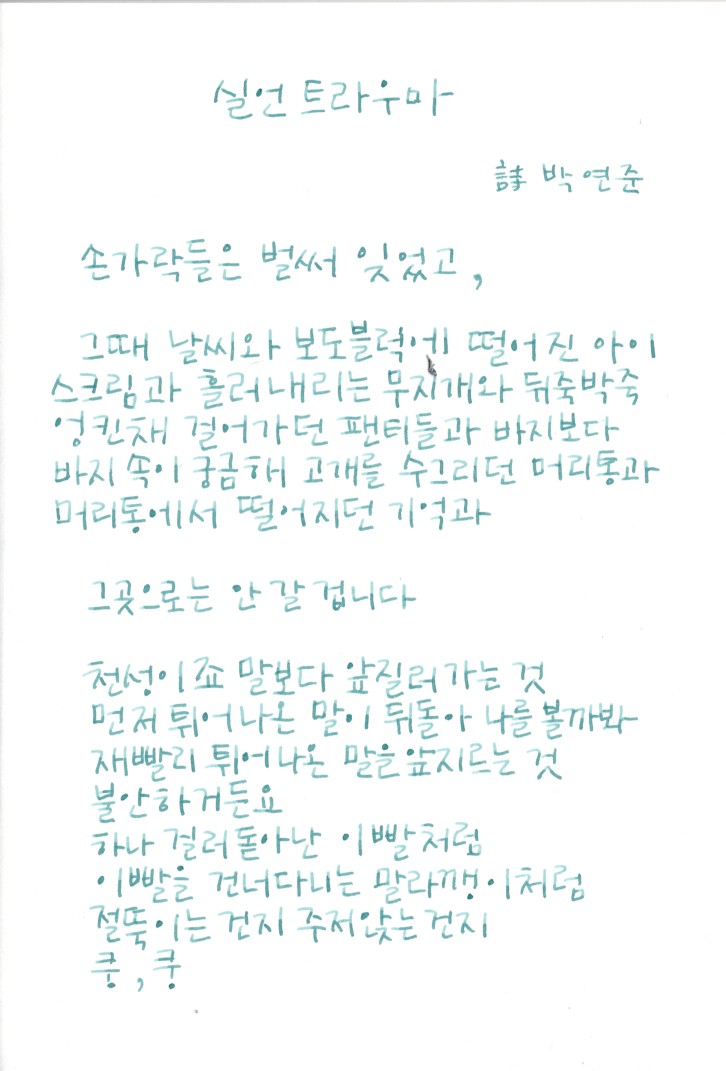 실언 트라우마
詩 박연준
손가락들은 벌써 잊었고,
그때 날씨와 보도블럭에 떨어진 아이
스크림과 흘러내리는 무지개와 뒤죽박죽
엉킨채 걸어가던 팬티들과 바지보다
바지 속이 궁금해 고개를 수그리던 머리통과
머리통에서 떨어지던 기억과
그곳으로는 안 갈 겁니다
천성이죠 말보다 앞질러가는 것
먼저 튀어나온 말이 뒤돌아 나를 볼까봐
재빨리 튀어나온 말을 앞지르는 것
불안하거든요
하나 걸러 돋아난 이빨처럼
이빨을 건너다니는 말라깽이처럼
절뚝이는 건지 주저앉는 건지
쿵, 쿵